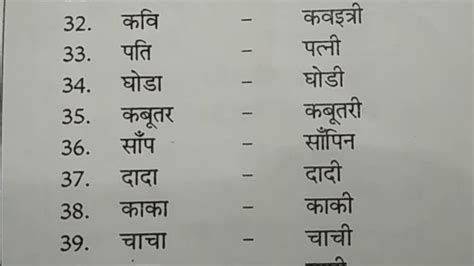 32. कवि - कवइत्री
33. पति - पत्नी
34. घोडा - घोडी
35. कबूतर - कबूतरी
36. साँप - साँपिन
37. दादा - दादी
38. काका - काकी
39. चाचा - चाची